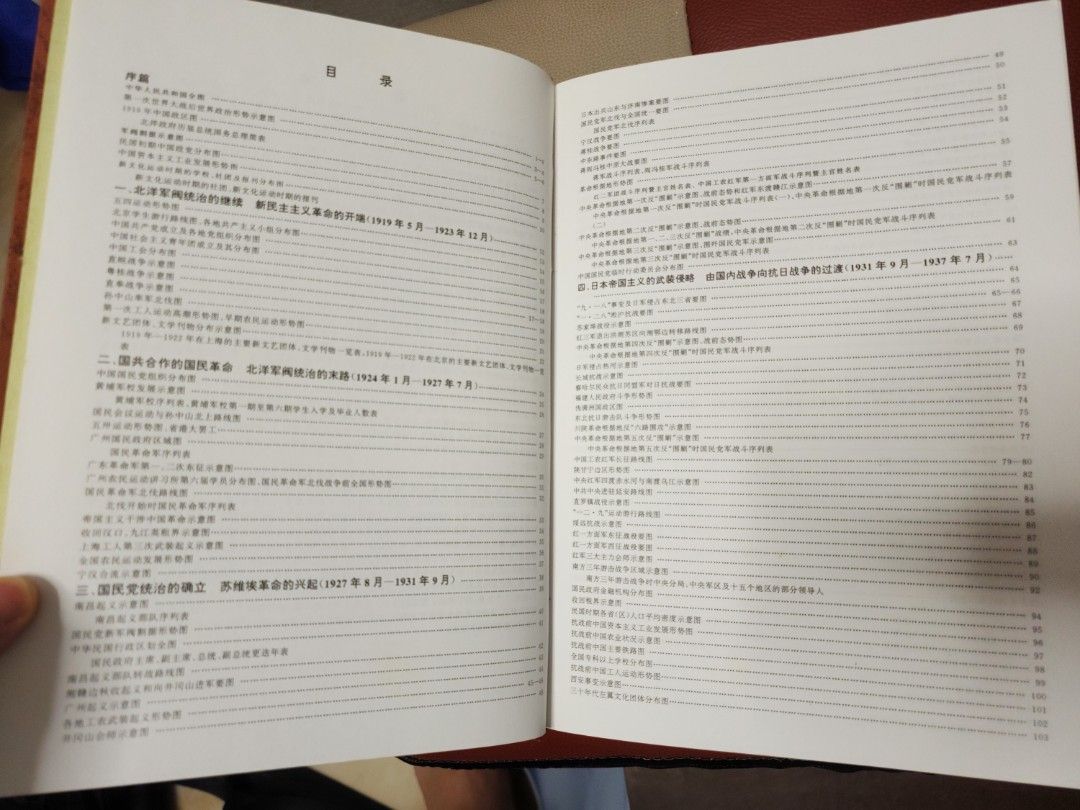 目 录
序篇
中华人民共和国全图
第一次世界大战后世界政治形势示意图
1919年中国政区图
北洋政府历届总统国务总理简表
军阀割据示意图
民国初期中国政党分布图
中国资本主义工业发展形势图
新文化运动时期的学校、社团及报刊分布图
新文化运动时期的社团、新文化运动时期的报刊
一、北洋军阀统治的继续 新民主主义革命的开端(1919年5月—1923年12月)
五四运动形势图
北京学生游行路线图、各地共产主义小组分布图
中国共产党成立及各地党组织分布图
中国社会主义青年团成立及其分布图
中国工会分布图
直皖战争示意图
粤桂战争示意图
直奉战争示意图
孙中山率军北伐图
第一次工人运动高潮形势图、早期农民运动形势图 17—18
新文艺团体、文学刊物分布示意图
1919年—1922年在上海的主要新文艺团体、文学刊物一览表、1919年—1922年在北京的主要新文艺团体、文学刊物一览
表
二、国共合作的国民革命 北洋军阀统治的末路(1924年1月—1927年7月)
中国国民党组织分布图
黄埔军校发展示意图
黄埔军校序列表、黄埔军校第一期至第六期学生入学及毕业人数表
国民会议运动与孙中山北上路线图
五卅运动形势图、省港大罢工
广州国民政府区域图
国民革命军序列表
广东革命军第一、二次东征示意图
广州农民运动讲习所第六届学员分布图、国民革命军北伐战争前全国形势图
国民革命军北伐路线图
北伐开始时国民革命军序列表
帝国主义干涉中国革命示意图
收回汉口、九江英租界示意图
上海工人第三次武装起义示意图
全国农民运动发展形势图
宁汉合流示意图
三、国民党统治的确立 苏维埃革命的兴起(1927年8月—1931年9月)
南昌起义示意图
南昌起义部队序列表
国民党新军阀割据形势图
中华民国行政区划全图
国民政府主席、副主席、总统、副总统更迭年表
南昌起义部队转战路线图
湘赣边秋收起义和向井冈山进军要图
广州起义示意图
各地工农武装起义形势图
井冈山会师示意图
49
日本出兵山东与济南惨案要图 50
国民党军北伐与全国统一要图
国民党军北伐序列表 51
宁汉战争要图 52
蒋桂战争要图 53
中东路事件要图 54
蒋阎冯桂中原大战要图
蒋军战斗序列表、阎冯桂军战斗序列表 55
革命根据地形势图
红一军团战斗序列暨主官姓名表、中国工农红军第一方面军战斗序列暨主官姓名表 57
中央革命根据地第一次反“围剿”示意图、战前态势和红军东渡赣江示意图
中央革命根据地第一次反“围剿”时国民党军战斗序列表(一)、中央革命根据地第一次反“围剿”时国民党军战斗序列表
(二)
中央革命根据地第二次反“围剿”示意图、战前态势图 59
中央革命根据地第一、二、三次反“围剿”战绩、中央革命根据地第二次反“围剿”时国民党军战斗序列表
中央革命根据地第三次反“围剿”示意图、围外国民党军示意图 61
中央革命根据地第三次反“围剿”时国民党军战斗序列表
中国国民党临时行动委员会分布图 63
四、日本帝国主义的武装侵略 由国内战争向抗日战争的过渡(1931年9月—1937年7月)
“九·一八”事变及日军侵占东北三省要图 64
“一·二八”淞沪抗战要图 65—66
苏家埠战役示意图 67
红三军退出洪湖苏区向湘鄂边转移路线图 68
中央革命根据地第四次反“围剿”示意图、战前态势图 69
中央革命根据地第四次反“围剿”时国民党军战斗序列表
日军侵占热河示意图 70
长城抗战示意图 71
察哈尔民众抗日同盟军对日抗战要图 72
福建人民政府斗争形势图 73
伪满洲国政区图 74
东北抗日游击队斗争图 75
川陕革命根据地反“六路围攻”示意图 76
中央革命根据地第五次反“围剿”示意图 77
中央革命根据地第五次反“围剿”时国民党军战斗序列表
中国工农红军长征路线图 79—80
陕甘宁边区形势图 82
中央红军四渡赤水河与南渡乌江示意图 83
中共中央进驻延安路线图 84
直罗镇战役示意图 85
“一二·九”运动游行路线图 86
绥远抗战示意图 87
红一方面军东征战役要图 88
红一方面军西征战役要图 89
红军三大主力会师示意图 90
南方三年游击战争区域示意图 92
南方三年游击战争时中央分局、中央军区及十五个地区的部分领导人
国民政府金融机构分布图 94
收回租界示意图 95
民国时期各省(区)人口平均密度示意图 96
抗战前中国资本主义工业发展形势图 97
抗战前中国农业状况示意图 98
抗战前中国主要铁路图 99
全国专科以上学校分布图 100
抗战前中国工人运动形势图 101
西安事变示意图 102
三十年代左翼文化团体分布图 103